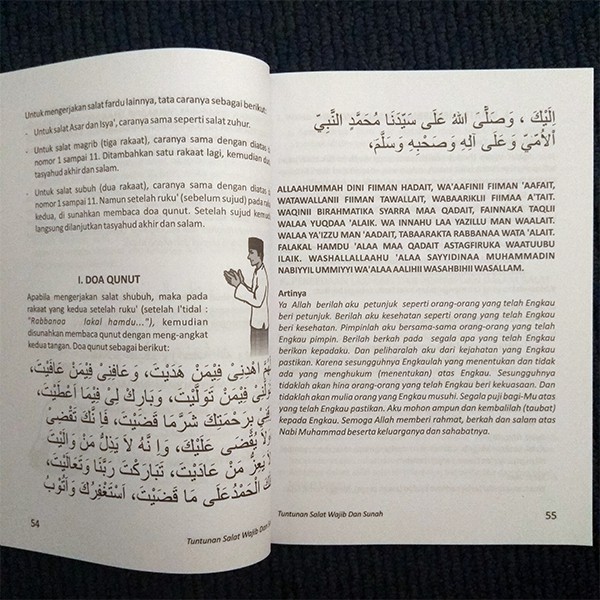 Untuk mengerjakan salat fardu lainnya, tata caranya sebagai berikut:
- Untuk salat Asar dan Isya', caranya sama seperti salat zuhur.
- Untuk salat magrib (tiga rakaat), caranya sama dengan diatas
nomor 1 sampai 11. Ditambahkan satu rakaat lagi, kemudian
tasyahud akhir dan salam.
- Untuk salat subuh (dua rakaat), caranya sama dengan diatas
nomor 1 sampai 11. Namun setelah ruku' (sebelum sujud) pada
kedua, di sunahkan membaca doa qunut. Setelah sujud
langsung dilanjutkan tasyahud akhir dan salam.
I. DOA QUNUT
Apabila mengerjakan salat shubuh, maka pada
rakaat yang kedua setelah ruku' (setelah I'tidal :
"Rabbanaa lakal hamdu..."), kemudian
disunahkan membaca qunut dengan meng-angkat
kedua tangan. Doa qunut sebagai berikut:
اهْدِنِيْ فِيْمَنْ هَدَيْتَ، وَعَافِنِيْ فِيْمَنْ عَافَيْتَ،
فِيْمَنْ تَوَلَّيْتَ، وَبَارِكْ لِيْ فِيْمَا اَعْطَيْتَ،
بِرَحْمَتِكَ شَرَّمَا قَضَيْتَ، فَاِنَّكَ تَقْضِيْ
وَلَا يُقْضَى عَلَيْكَ، وَاِنَّهُ لَا يَذِلُّ مَنْ وَالَيْتَ
يَعِزُّ مَنْ عَادَيْتَ، تَبَارَكْتَ رَبَّنَا وَتَعَالَيْتَ،
الْحَمْدُ عَلَى مَا قَضَيْتَ، اَسْتَغْفِرُكَ وَاَتُوْبُ
54
Tuntunan Salat Wajib Dan
اِلَيْكَ ، وَصَلَّىَ اللهُ عَلَى سَيِّدَنَا مُحَمَّدٍ النَّبِيِّ
الْاُمِّيِّ وَعَلَى آلِهِ وَصَحْبِهِ وَسَلَّمَ،
ALLAAHUMMAH DINI FIIMAN HADAIT, WA'AAFINII FIIMAN 'AAFAIT,
WATAWALLANII FIIMAN TAWALLAIT, WABAARIKLII FIIMAA A'TAIT.
WAQINII BIRAHMATIKA SYARRA MAA QADAIT, FAINNAKA TAQLII
WALAA YUQDAA 'ALAIK. WA INNAHU LAA YAZILLU MAN WAALAIT.
WALAA YA'IZZU MAN 'AADAIT, TABAARAKTA RABBANAA WATA 'ALAIT.
FALAKAL HAMDU 'ALAA MAA QADAIT ASTAGFIRUKA WAATUUBU
ILAIK. WASHALLALLAAHU 'ALAA SAYYIDINAA MUHAMMADIN
NABIYYIL UMMIYYI WA'ALAA AALIHII WASAHBIHII WASALLAM.
Artinya
Ya Allah berilah aku petunjuk seperti orang-orang yang telah Engkau
beri petunjuk. Berilah aku kesehatan seperti orang-orang yang Engkau
beri kesehatan. Pimpinlah aku bersama-sama orang-orang yang telah
Engkau pimpin. Berilah berkah pada segala apa yang telah Engkau
berikan kepadaku. Dan peliharalah aku dari kejahatan yang Engkau
pastikan. Karena sesungguhnya Engkaulah yang menentukan dan tidak
ada yang menghukum (menentukan) atas Engkau. Sesungguhnya
tidaklah akan hina orang-orang yang telah Engkau beri kekuasaan. Dan
tidaklah akan mulia orang yang Engkau musuhi. Segala puji bagi-Mu atas
yang telah Engkau pastikan. Aku mohon ampun dan kembalilah (taubat)
kepada Engkau. Semoga Allah memberi rahmat, berkah dan salam atas
Nabi Muhammad beserta keluarganya dan sahabatnya.
Tuntunan Salat Wajib Dan Sunah
55